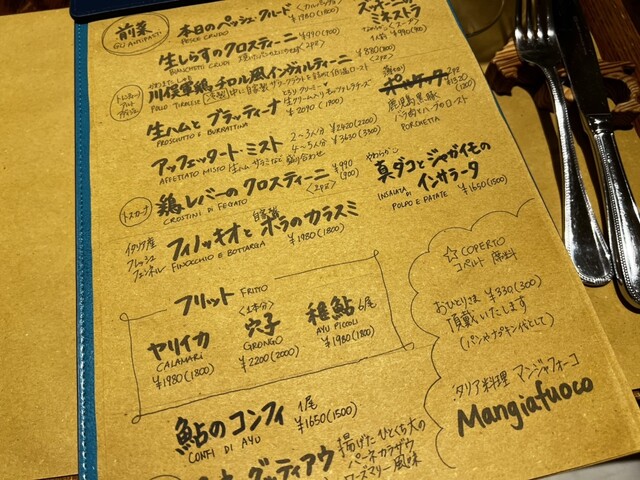 前菜
GLI ANTIPASTI
本日のペッシュクルード
PESCE CRUDO
¥1980(1800)
生しらすのクロスティーニ
BIANCHETTI CRUDI
¥990
(900)
<2PZ>
川俣軍鶏 チロル風インヴォルティーニ
POLLO TIROLESE
生ハムと ブラッティーナ
PROSCIUTTO E BURRATTINA
とろりクリーミー♥
生クリーム入りモッツァレラチーズ
¥2090(1900)
アッフェッタート・ミスト
AFFETTATO MISTO 生ハム サラミなど 盛り合わせ
2〜3人分 ¥2420(2200)
4〜5人分 ¥3630(3300)
トスカーナ
鶏レバーのクロスティーニ
CROSTINI DI FEGATO
<2PZ>
¥990
(900)
イタリア産
フレッシュ
フェンネル
フィノッキオと 自家製 ボラのカラスミ
FINOCCHIO E BOTTARGA
¥1980(1800)
ズッキーニの
ミネストラ
¥880
(800)
¥990(900)
ポルケッタ
2PZ
¥1320
(1200)
鹿児島黒豚
バラ肉のハーブロースト
PORCHETTA
やわらか〜
真ダコとジャガイモの
インサラータ
INSALATA
DI
POLPO E PATATE
¥1650(1500)
フリット FRITTO
ヤリイカ
CALAMARI
¥1980(1800)
<1本分>
穴子
GRONGO
¥2200(2000)
稚鮎 6尾
AYU PICCOLI
¥1980(1800)
鮎のコンフィ
CONFI DI AYU
1尾
¥1650(1500)
グッティアウ
揚げたひとくち大の
パーネカラザウ
ローズマリー風味
☆ COPERTO
コペルト 席料
おひとりさま ¥330(300)
頂戴いたします
(パンやナプキン代として)
タリア料理 マンジャフォーコ
Mangiafuoco